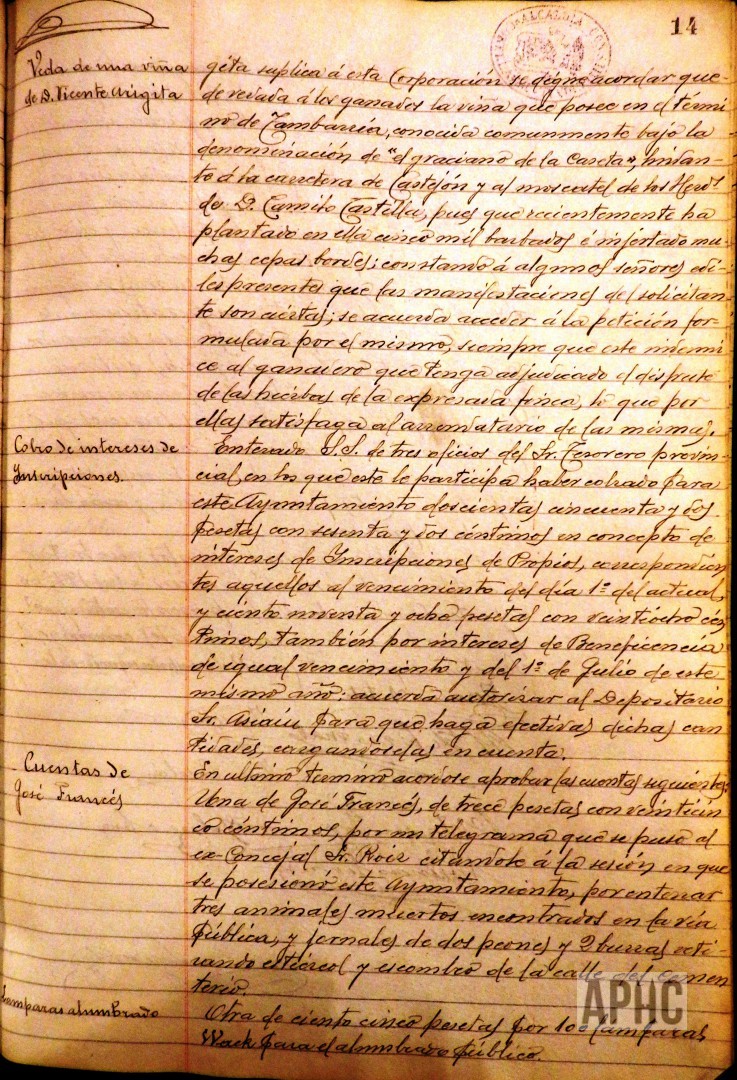 14
ALCALDÍA
Veda de una viña
de D. Vicente Arigita
gita suplica á esta Corporación se digne acordar que-
de vedada á los ganados la viña que posee en el térmi
no de Tambarría, conocida comunmente bajo la
denominación de "el graciano de la Caseta", lindan-
te á la carretera de Castejón y al moscatel de los Hered.s
de D. Camilo Castilla, pues que recientemente ha
plantado en ella cinco mil barbados é injertado mu-
chas cepas bordes; constando á algunos señores edi-
les presentes que las manifestaciones del solicitan-
te son ciertas; se acuerda acceder á la petición for-
mulada por el mismo, siempre que este indemni
ce al ganadero que tenga adjudicado el disfrute
de las hierbas de la expresada finca, lo que por
ellas satisfaga al arrendatario de las mismas.
Cobro de intereses de
Inscripciones.
Enterado S.S. de tres oficios del Sr. Tesorero provin-
cial, en los que este le participa haber cobrado para
este Ayuntamiento doscientas cincuenta y dos
pesetas con sesenta y dos céntimos en concepto de
intereses de Inscripciones de Propios, correspondien
tes aquellos al vencimiento del día 1º del actual,
y ciento noventa y ocho pesetas con veintiocho cén
timos, también por intereses de Beneficencia
de igual vencimiento y del 1º de Julio de este
mismo año: acuerda autorizar al Depositario
Sr. Asiain para que haga efectivas dichas can
tidades, cargandoselas en cuenta.
Cuentas de
José Francés
En ultimo termino acordose aprobar las cuentas siguientes:
Una de José Francés, de trece pesetas con veinticin
co céntimos, por un telegrama que se puso al
ex-Concejal Sr. Roiz citandole á la sesión en que
se posesionó este Ayuntamiento, por enterrar
tres animales muertos encontrados en la vía
pública, y jornales de dos peones y 2 burras reti-
rando estiércol y escombro de la calle del Cemen
terio.
Lamparas alumbrado
Otra de ciento cinco pesetas por 100 lamparas
para el alumbrado público.
APHC